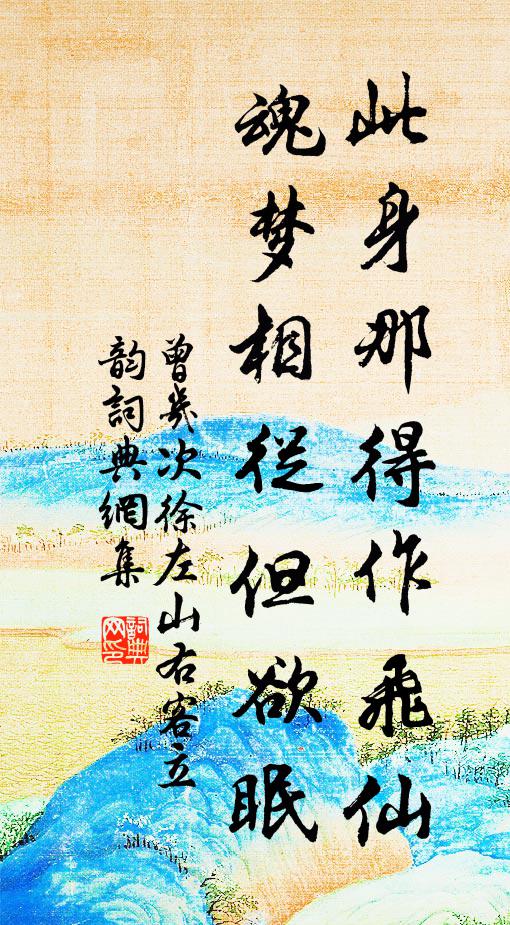 此身那得作飛仙
魂梦相從但欲眠
曾幾次徐左山右客立
韵詞典網集
詞典
网印